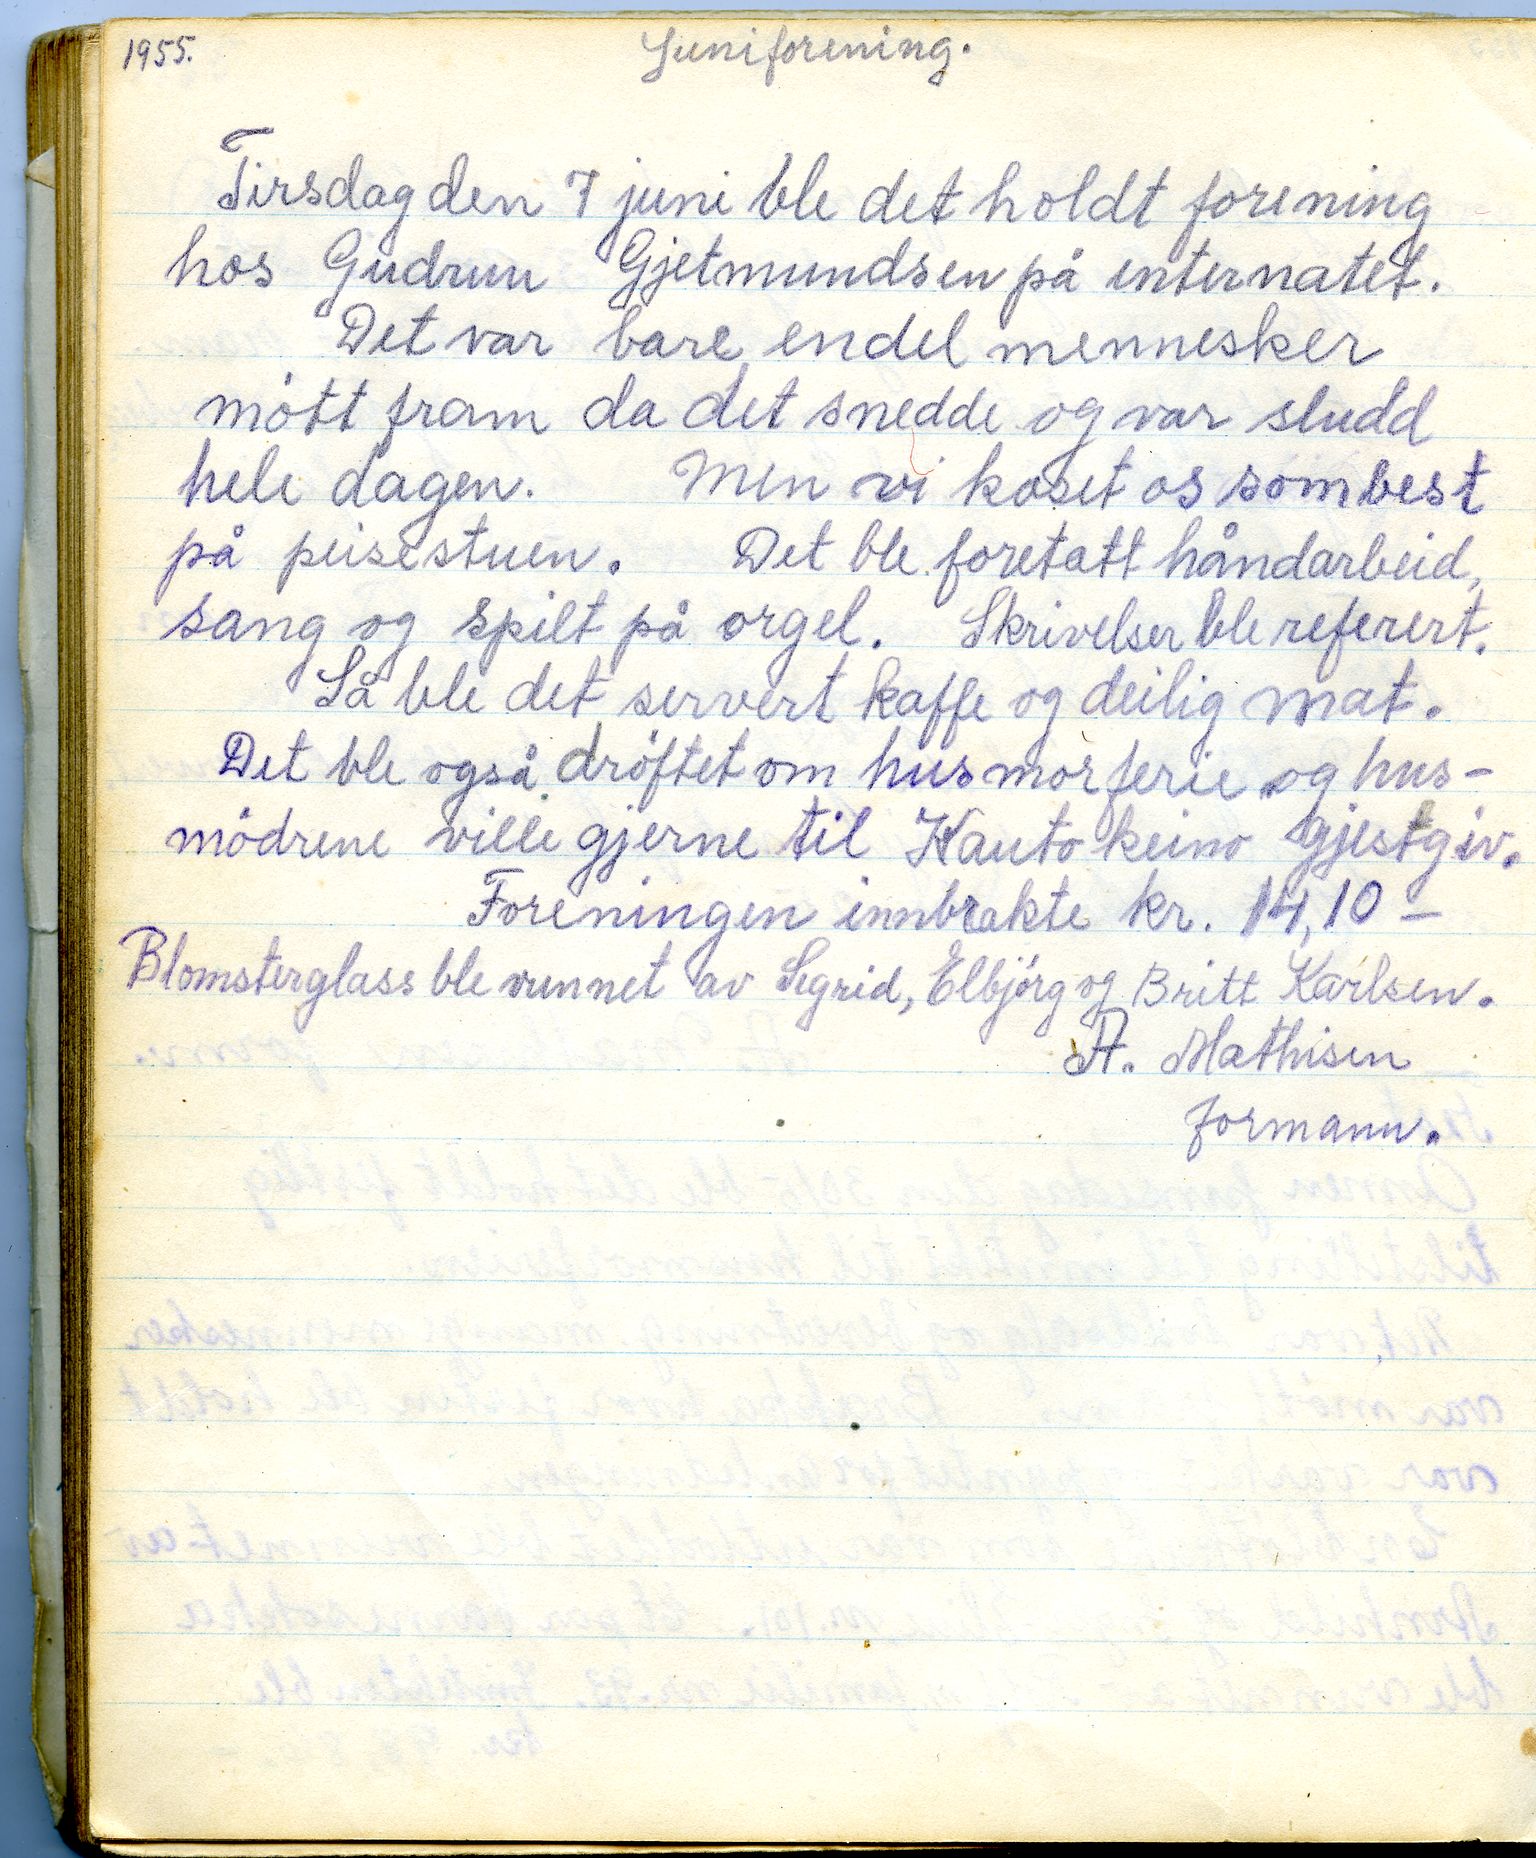 1955.
Juniforening.
Tirsdag den 7 juni ble det holdt forening
hos Gudrun Gjetmundsen på internatet.
Det var bare endel mennesker
mött fram da det snedde og var sludd
hele dagen. Men vi koset os som best
på peisestuen. Det ble foretatt håndarbeid,
sang og spilt på orgel. Skrivelser ble referert.
Så ble det servert kaffe og deilig mat.
Det ble også dröftet om husmorferie og hus-
mödrene ville gjerne til Kautokeino gjestgiv.
Foreningen innbrakte kr. 14,10 –
Blomsterglass ble vunnet av Sigrid, Elbjörg og Britt Karlsen.
A. Mathisen
formann.